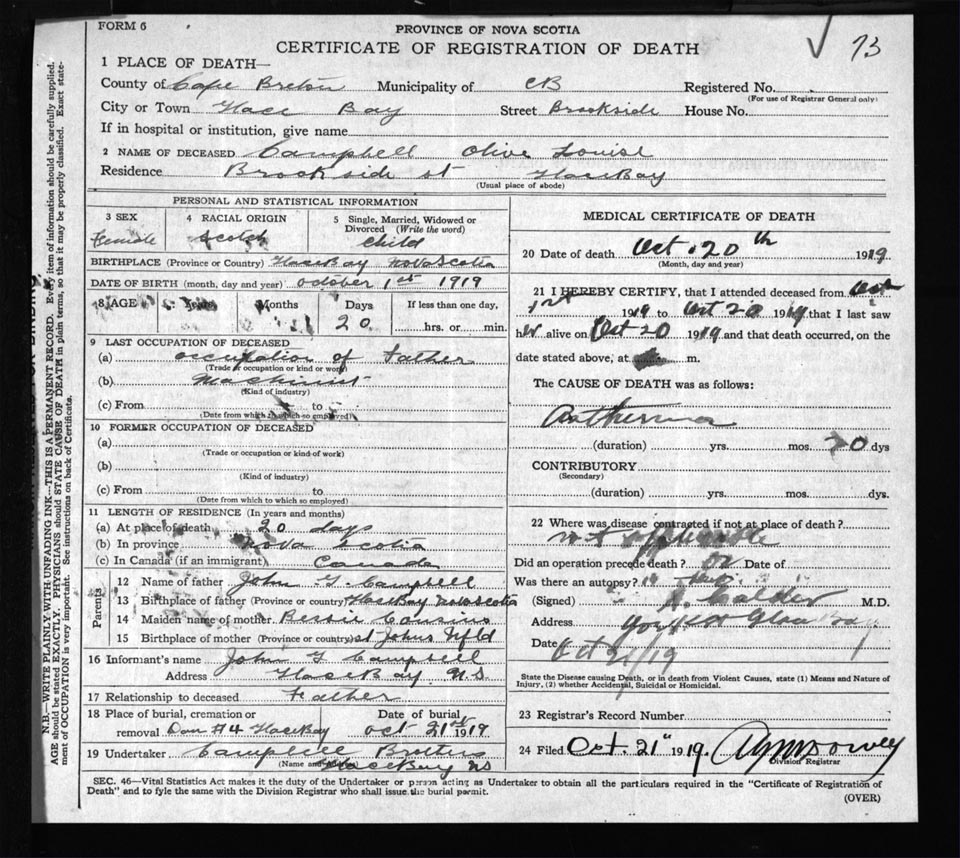 FORM 6
PROVINCE OF NOVA SCOTIA
73
CERTIFICATE OF REGISTRATION OF DEATH
1 PLACE OF DEATH—
County of Cape Breton Municipality of CB Registered No.
(For use of Registrar General only)
City or Town Glace Bay Street Brookside House No.
If in hospital or institution, give name
2 NAME OF DECEASED Campbell Olive Louise
Residence Brookside st Glace Bay
(Usual place of abode)
PERSONAL AND STATISTICAL INFORMATION
3 SEX 4 RACIAL ORIGIN 5 Single, Married, Widowed or Divorced (Write the word)
Female Scotch child
BIRTHPLACE (Province or Country) Glace Bay Nova Scotia
DATE OF BIRTH (month, day and year) October 1st 1919
8 AGE Years Months Days If less than one day,
20 hrs. or min.
9 LAST OCCUPATION OF DECEASED
(a) occupation of Father
(Trade occupation or kind or work)
(b) Machinist
(Kind of industry)
(c) From to
(Date from which to which so employed)
10 FORMER OCCUPATION OF DECEASED
(a)
(Trade or occupation or kind of work)
(b)
(Kind of industry)
(c) From to
(Date from which to which so employed)
11 LENGTH OF RESIDENCE (In years and months)
(a) At place of death 20 days
(b) In province Nova Scotia
(c) In Canada (if an immigrant) Canada
Parents
12 Name of father John G. Campbell
13 Birthplace of father (Province or country) Glace Bay Nova Scotia
14 Maiden name of mother Bessie Cousins
15 Birthplace of mother (Province or country) St Johns Nfld
16 Informant's name John G Campbell
Address Glace Bay N.S.
17 Relationship to deceased Father
18 Place of burial, cremation or removal Dom #4 Glace Bay Date of burial Oct 21st 1919
19 Undertaker Campbell Brothers
(Name and Glace Bay NS
MEDICAL CERTIFICATE OF DEATH
20 Date of death Oct. 20th 1919.
(Month, day and year)
21 I HEREBY CERTIFY, that I attended deceased from Oct
1st 1919 to Oct 20 1919 that I last saw
her alive on Oct 20 1919 and that death occurred, on the
date stated above, at m.
The CAUSE OF DEATH was as follows:
(duration) yrs. mos. 20 dys
CONTRIBUTORY
(Secondary)
(duration) yrs. mos. dys.
22 Where was disease contracted if not at place of death?
not
Did an operation precede death? no Date of
Was there an autopsy?
(Signed) Calder M.D.
Address
Date Oct 21/19
State the Disease causing Death, or in death from Violent Causes, state (1) Means and Nature of Injury, (2) whether Accidental, Suicidal or Homicidal.
23 Registrar's Record Number
24 Filed Oct. 21" 1919.
Division Registrar
SEC. 46—Vital Statistics Act makes it the duty of the Undertaker or person acting as Undertaker to obtain all the particulars required in the "Certificate of Registration of
Death" and to fyle the same with the Division Registrar who shall issue the burial permit. (OVER)
N.B.—WRITE PLAINLY, WITH UNFADING INK—THIS IS A PERMANENT RECORD. Every item of information should be carefully supplied.
AGE should be stated EXACTLY. PHYSICIANS should STATE CAUSE OF DEATH in plain terms, so that it may be properly classified. Exact state-
ment of OCCUPATION is very important. See instructions on back of Certificate.